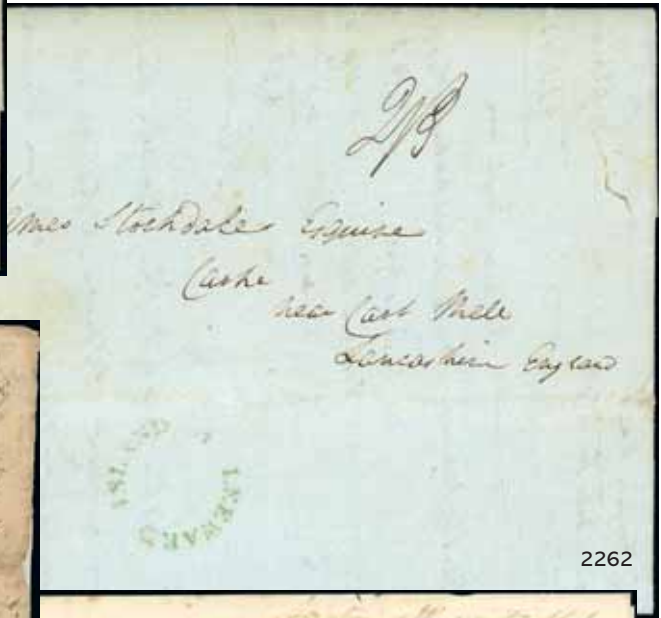 2/3
ames Stockdale Esquire
Carke
near Cart Mell
Lancashire England
ISLAND
LEEWARD
2262